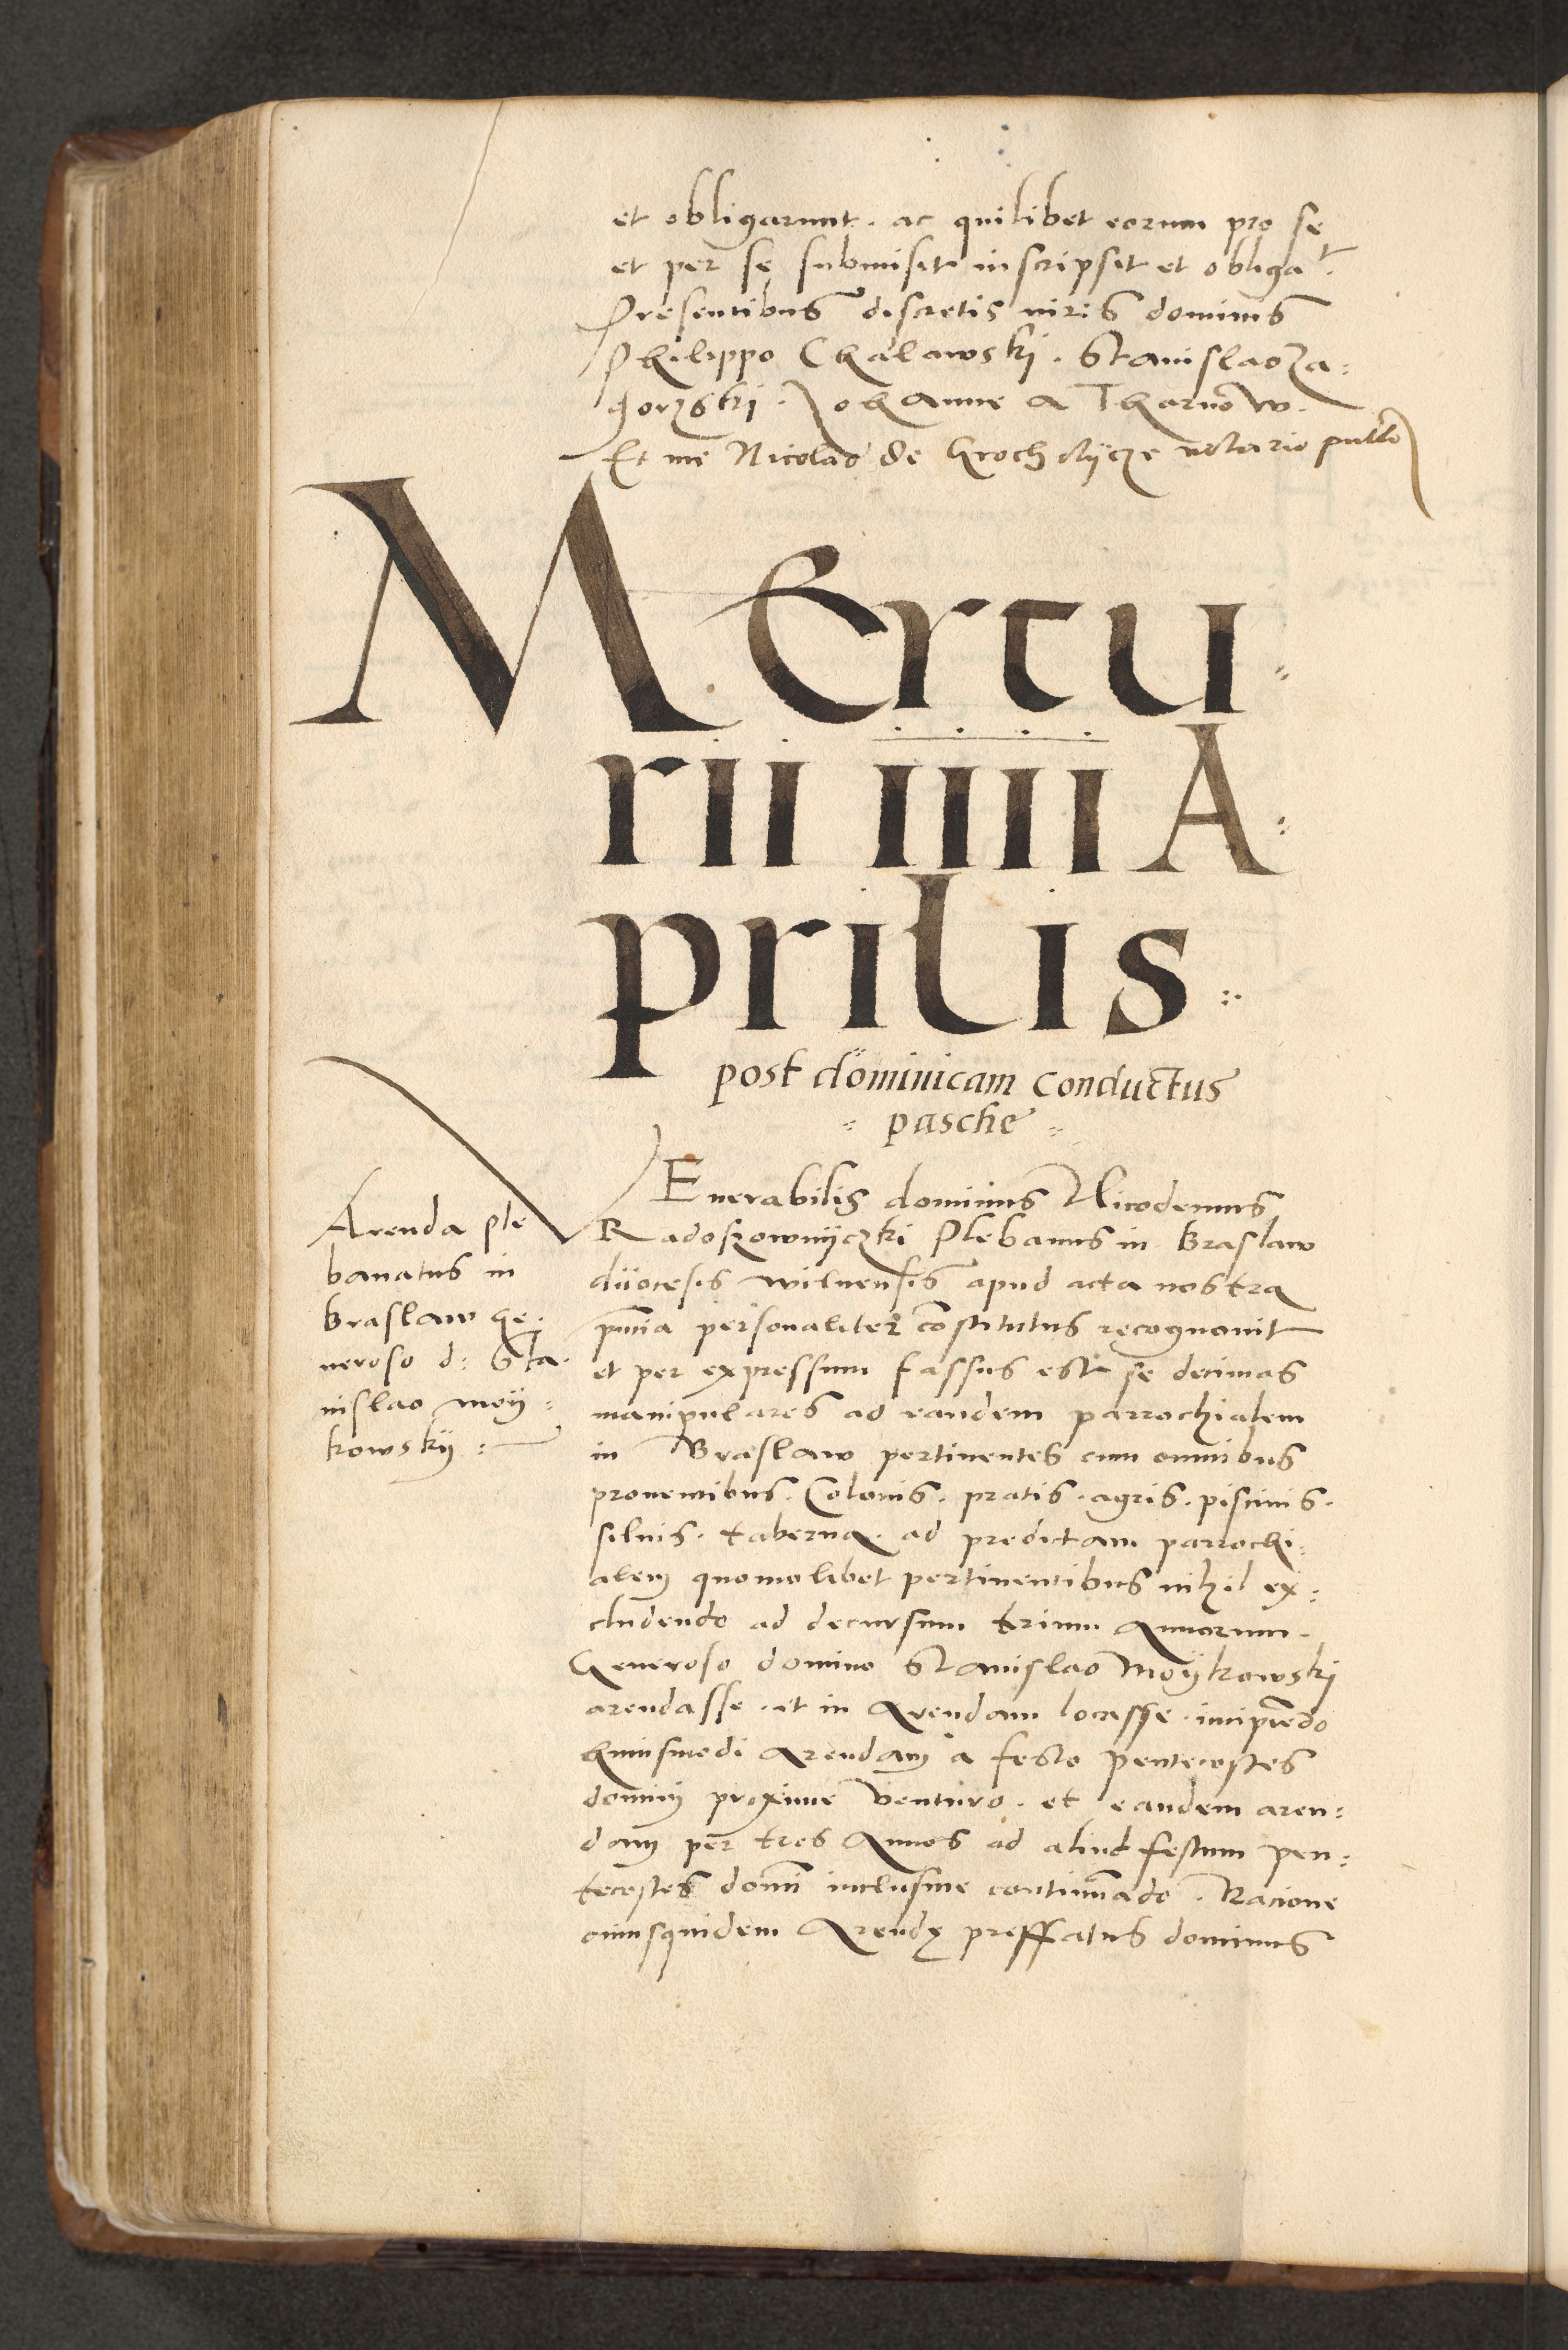 et obligarunt. ac quilibet eorum pro se
et per sę submisit inscripsit et obligat.
Presentibus discretis viris dominis
Philippo Chalawski. Stanislao Za:
gorzski. Johanne a Tharnow.
Et me Nicolao de Grocholycze notario pubco
MErcu:
rii iiii A:
prilis :·
post dominicam conductus
: pasche :
VEnerabilis dominus Nicodemus
Radoszownyczki Plebanus in Braslaw
diiocesis wilnensis apud acta nostra
pñia personaliter cõstitutus recognouit
et per expressum fassus est se decimas
manipulares ad eandem parrochialem
in Braslaw pertinentes cum omnibus
prouentibus. Colonis. pratis. agris. piscinis.
siluis. taberna. ad predictam parrochi:
alem quomolibet pertinentibus nihil ex:
cludendo ad decursum trium Annorum.
Generoso domino Stanislao Moÿkowski
arendasse. et in Arendam locasse. incipiẽdo
huiusmodi Arendam a festo Pentecostes
dominj proxime venturo. et eandem aren:
dam per tres Annos ad aliud festum pen:
tecostes domĩ inclusiue continuãdo. Racione
cuiusquidem Arendę preffatus dominus
Arenda ple
banatus in
Braslaw ge:
neroso d: Sta:
nislao moÿ:
kowskÿ :